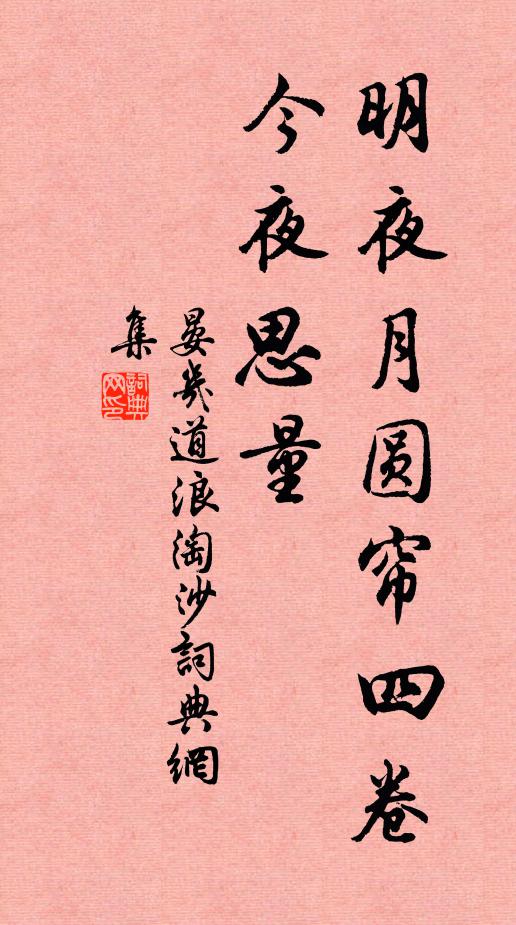 明夜月圆帘四卷
今夜思量
晏幾道浪淘沙詞典網
集
詞典
网印